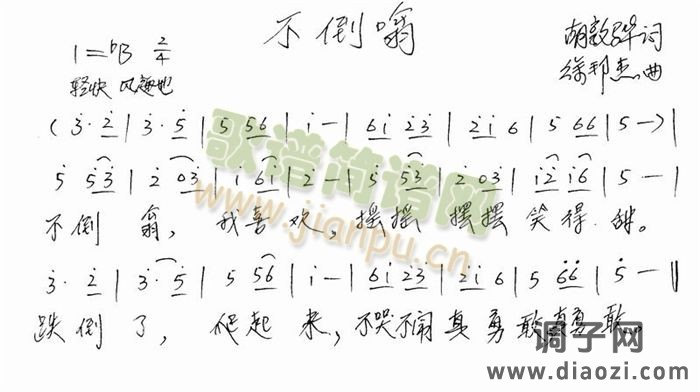 不倒嗡
1=ᵇB 2/4
胡敦骅词
轻快 风趣地
徐邦杰曲
(3̇· 2̇ | 3̇· 5̇ | 5 56 | i̇ - | 6i̇ 2̇3̇ | 2̇i̇ 6 | 5 66 | 5 -) |
5 53̇ | 2̇ 03̇ | i̇ 6i̇ | 2̇ - | 5̇ 53̇ | 2̇ 03̇ | i̇2̇ i̇6 | 5 - |
不倒 翁, 我喜 欢, 摇摇 摆摆 笑得 甜。
3̇· 2̇ | 3̇· 5̇ | 5 56 | i̇ - | 6i̇ 2̇3̇ | 2̇i̇ 6 | 5 6̇6̇ | 5̇ - ‖
跌倒 了, 爬起 来, 不哭不闹真 勇敢真勇敢。
歌谱简谱网
www.jianpu.cn
调子网
www.diaozi.com